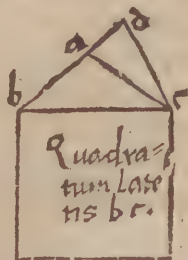 d
a
b c
Quadra=
tum Late
ris b c.